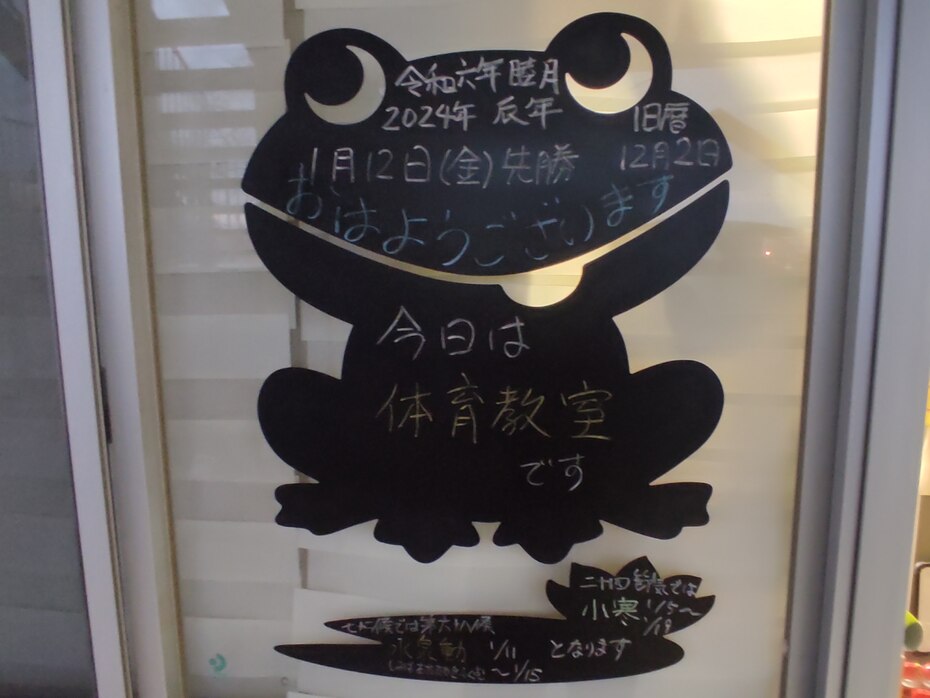 令和六年 睦月
2024年 辰年
旧暦
12月2日
1月12日(金)先勝
おはようございます
今日は
体育教室
です
二十四節気では
小寒 1/5～
1/19
七十二候では第六十八候
水泉動 1/11
～1/15
となります